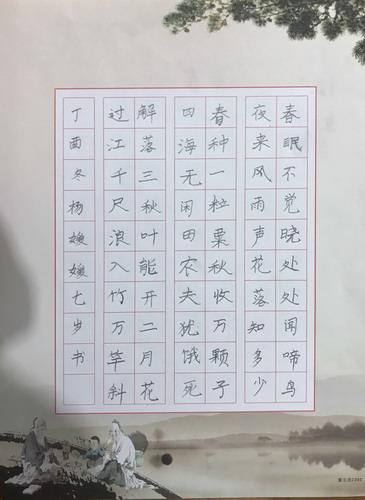 春眠不觉晓处处闻啼鸟
夜来风雨声花落知多少
春种一粒粟秋收万颗子
四海无闲田农夫犹饿死
解落三秋叶能开二月花
过江千尺浪入竹万竿斜
丁酉冬杨媛媛七岁书